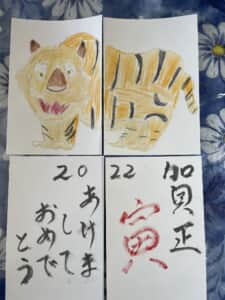 2022
賀正
寅
あけま
して
おめで
とう